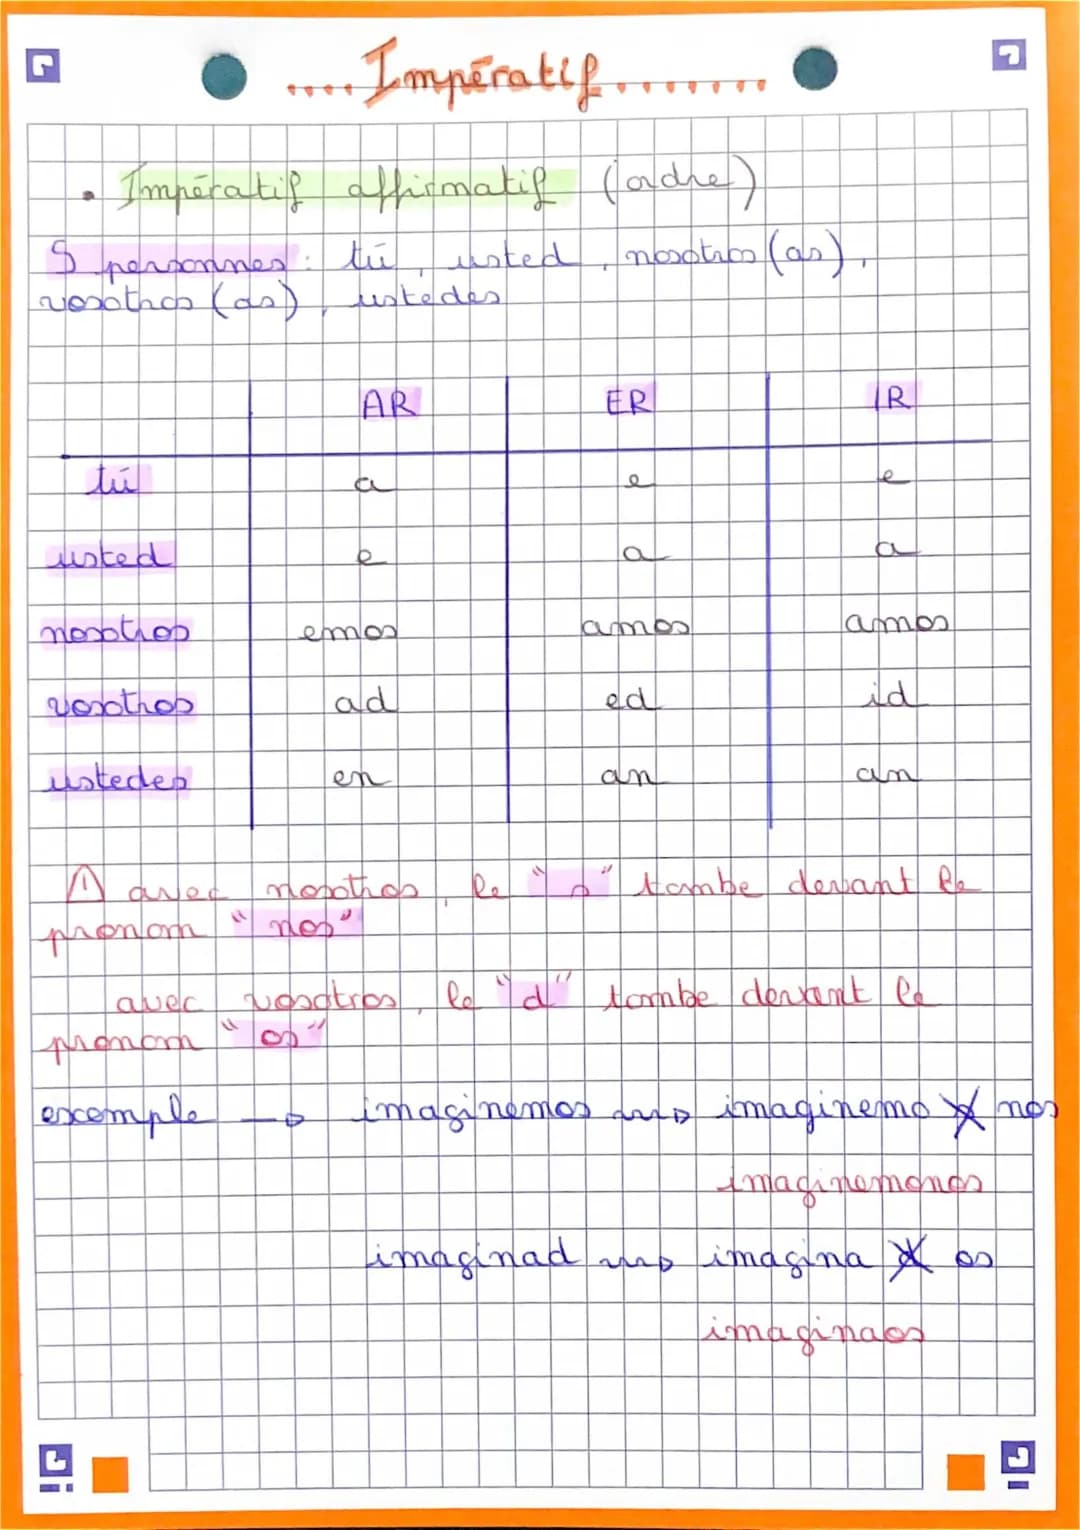 ....Impératif.......
• Impératif affirmatif (ordre)
5 personnes : tú, usted, nosotros (as),
vosotros (as), ustedes
AR ER IR
tú a e e
usted e a a
nosotros emos amos amos
vosotros ad ed id
ustedes en an an
⚠ avec nosotros, le "s" tombe devant le
pronom "nos"
avec vosotros, le "d" tombe devant le
pronom "os"
exemple → imaginemos → imaginemos nos
imaginemonos
imaginad → imaginad os
imaginaos